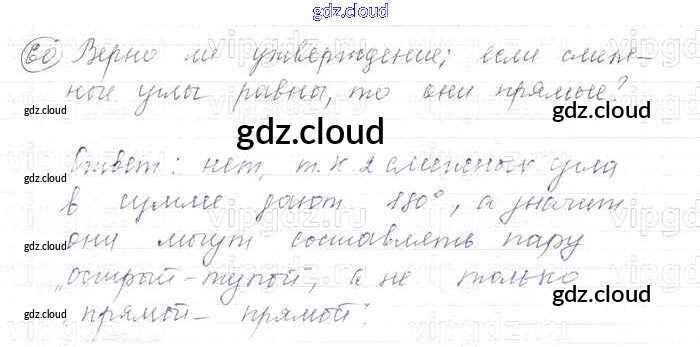 gdz.cloud
60 Верно ли утверждение; если смеж-
ные углы равны, то они прямые?
gdz.cloud gdz.cloud
gdz.cloud
Ответ: нет, т.к 2 смежных угла
gdz.cloud
в сумме дают 180°, а значит
они могут составлять пару
gdz.cloud
„острый-тупой", а не только
gdz.cloud
gdz.cloud
прямой- прямой".